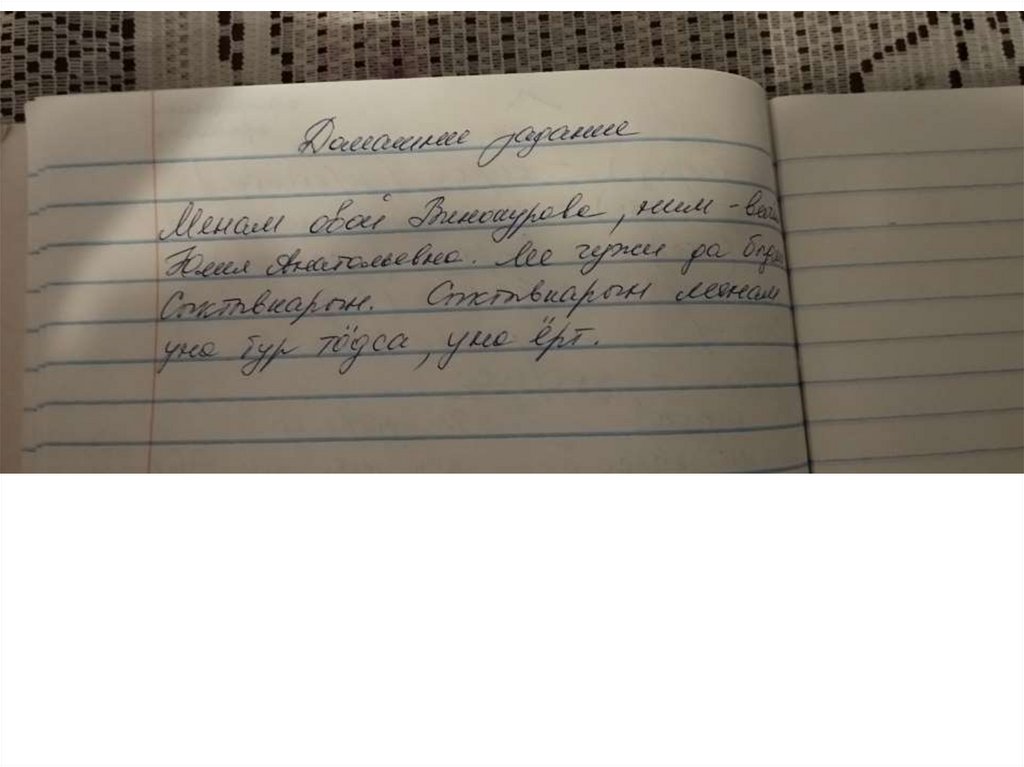 Домашнее задание
Менам овой Винокурова, ним - вича
Юлия Анатольевна. Ме чужи да быдми
Сыктывкарын. Сыктывкарын менам
уна бур тӧдса, уна ёрт.